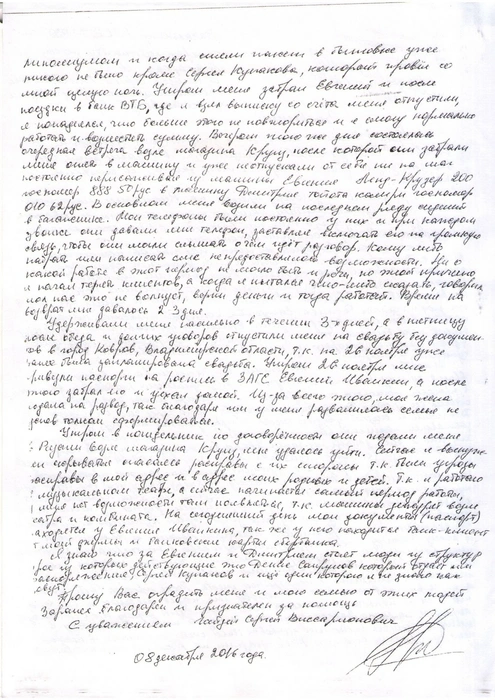 и когда сняли в бытовке уже
никого не было кроме Сергея Купакова, который провёл со
мной целую ночь. Утром меня забрал Евгений и после
поездки в банк ВТБ, где я взял выписку со счёта меня отпустили,
я понадеялся, что больше этого не повториться и я смогу нормально
работать и сумму. Вечером этого же дня состоялась
очередная встреча возле магазина Круиз, после которой они забрали
меня опять в машину и уже не отпускали от себя ни на шаг
постоянно пересаживая из машины Евгения Ленд-Крузер 200
госномер 888 50 рус в машину Дмитрия тойота камри госномер
010 62 рус. В основном меня возили на последнем ряду сидений
в багажнике. Мои телефоны были постоянно у них и при каждом
звонке они давали мне телефон, заставляя включать его на громкую
связь, чтобы они могли слышать о чём идёт разговор. Кому либо
набрать или написать смс не представлялось возможности. Ни о
какой работе в этот период не могло быть и речи, по этой причине
я начал терять клиентов, а когда я пытался что-либо сказать, говорил
нас это не волнует, верни деньги и тогда работай. Времени на
возврат мне давалось 2-3 дня.
Удерживали меня насильно в течении 3-х дней, а в пятницу
после отдела и долгих уговоров отпустили меня на свадьбу без документов
в город Ковров, Владимирской области, т.к. на 26 ноября уже
была запланирована свадьба. Утром 26 ноября мне
привезли паспорта на роспись в ЗАГС Евгений Ивашкин, а после
этого забрал его и уехал домой. Из-за всего этого, моя жена
подала на развод, так благодаря им у меня развалилась семья не
успев толком сформироваться.
Утром в понедельник по договорённости они ждали меня
в Рязани возле магазина Круиз, мне удалось уйти. Сейчас я вынужден
скрываться опасаясь расправы с их стороны т.к. были угрозы
расправы в мой адрес и в адрес моих родных и детей. Т.к. я работаю
в музыкальном театре, а сейчас начинается самый период работы,
у меня нет возможности там появляться, т.к. машины дежурят возле
театра и компании. На сегодняшний день мои документы (паспорт)
находятся у Евгения Ивашкина, так же у него находится банк-клиент
и банковские карты
Я знаю что за Евгением и Дмитрием стоят люди из структур
один из которых действующий это Денис который отдал им
Сергей Купаков и ещё один которого я не знаю как
зовут.
Прошу Вас оградить меня и мою семью от этих людей
Заранее благодарен и признателен за помощь
С уважением Сергей Виссарионович
08 декабря 2016 года.